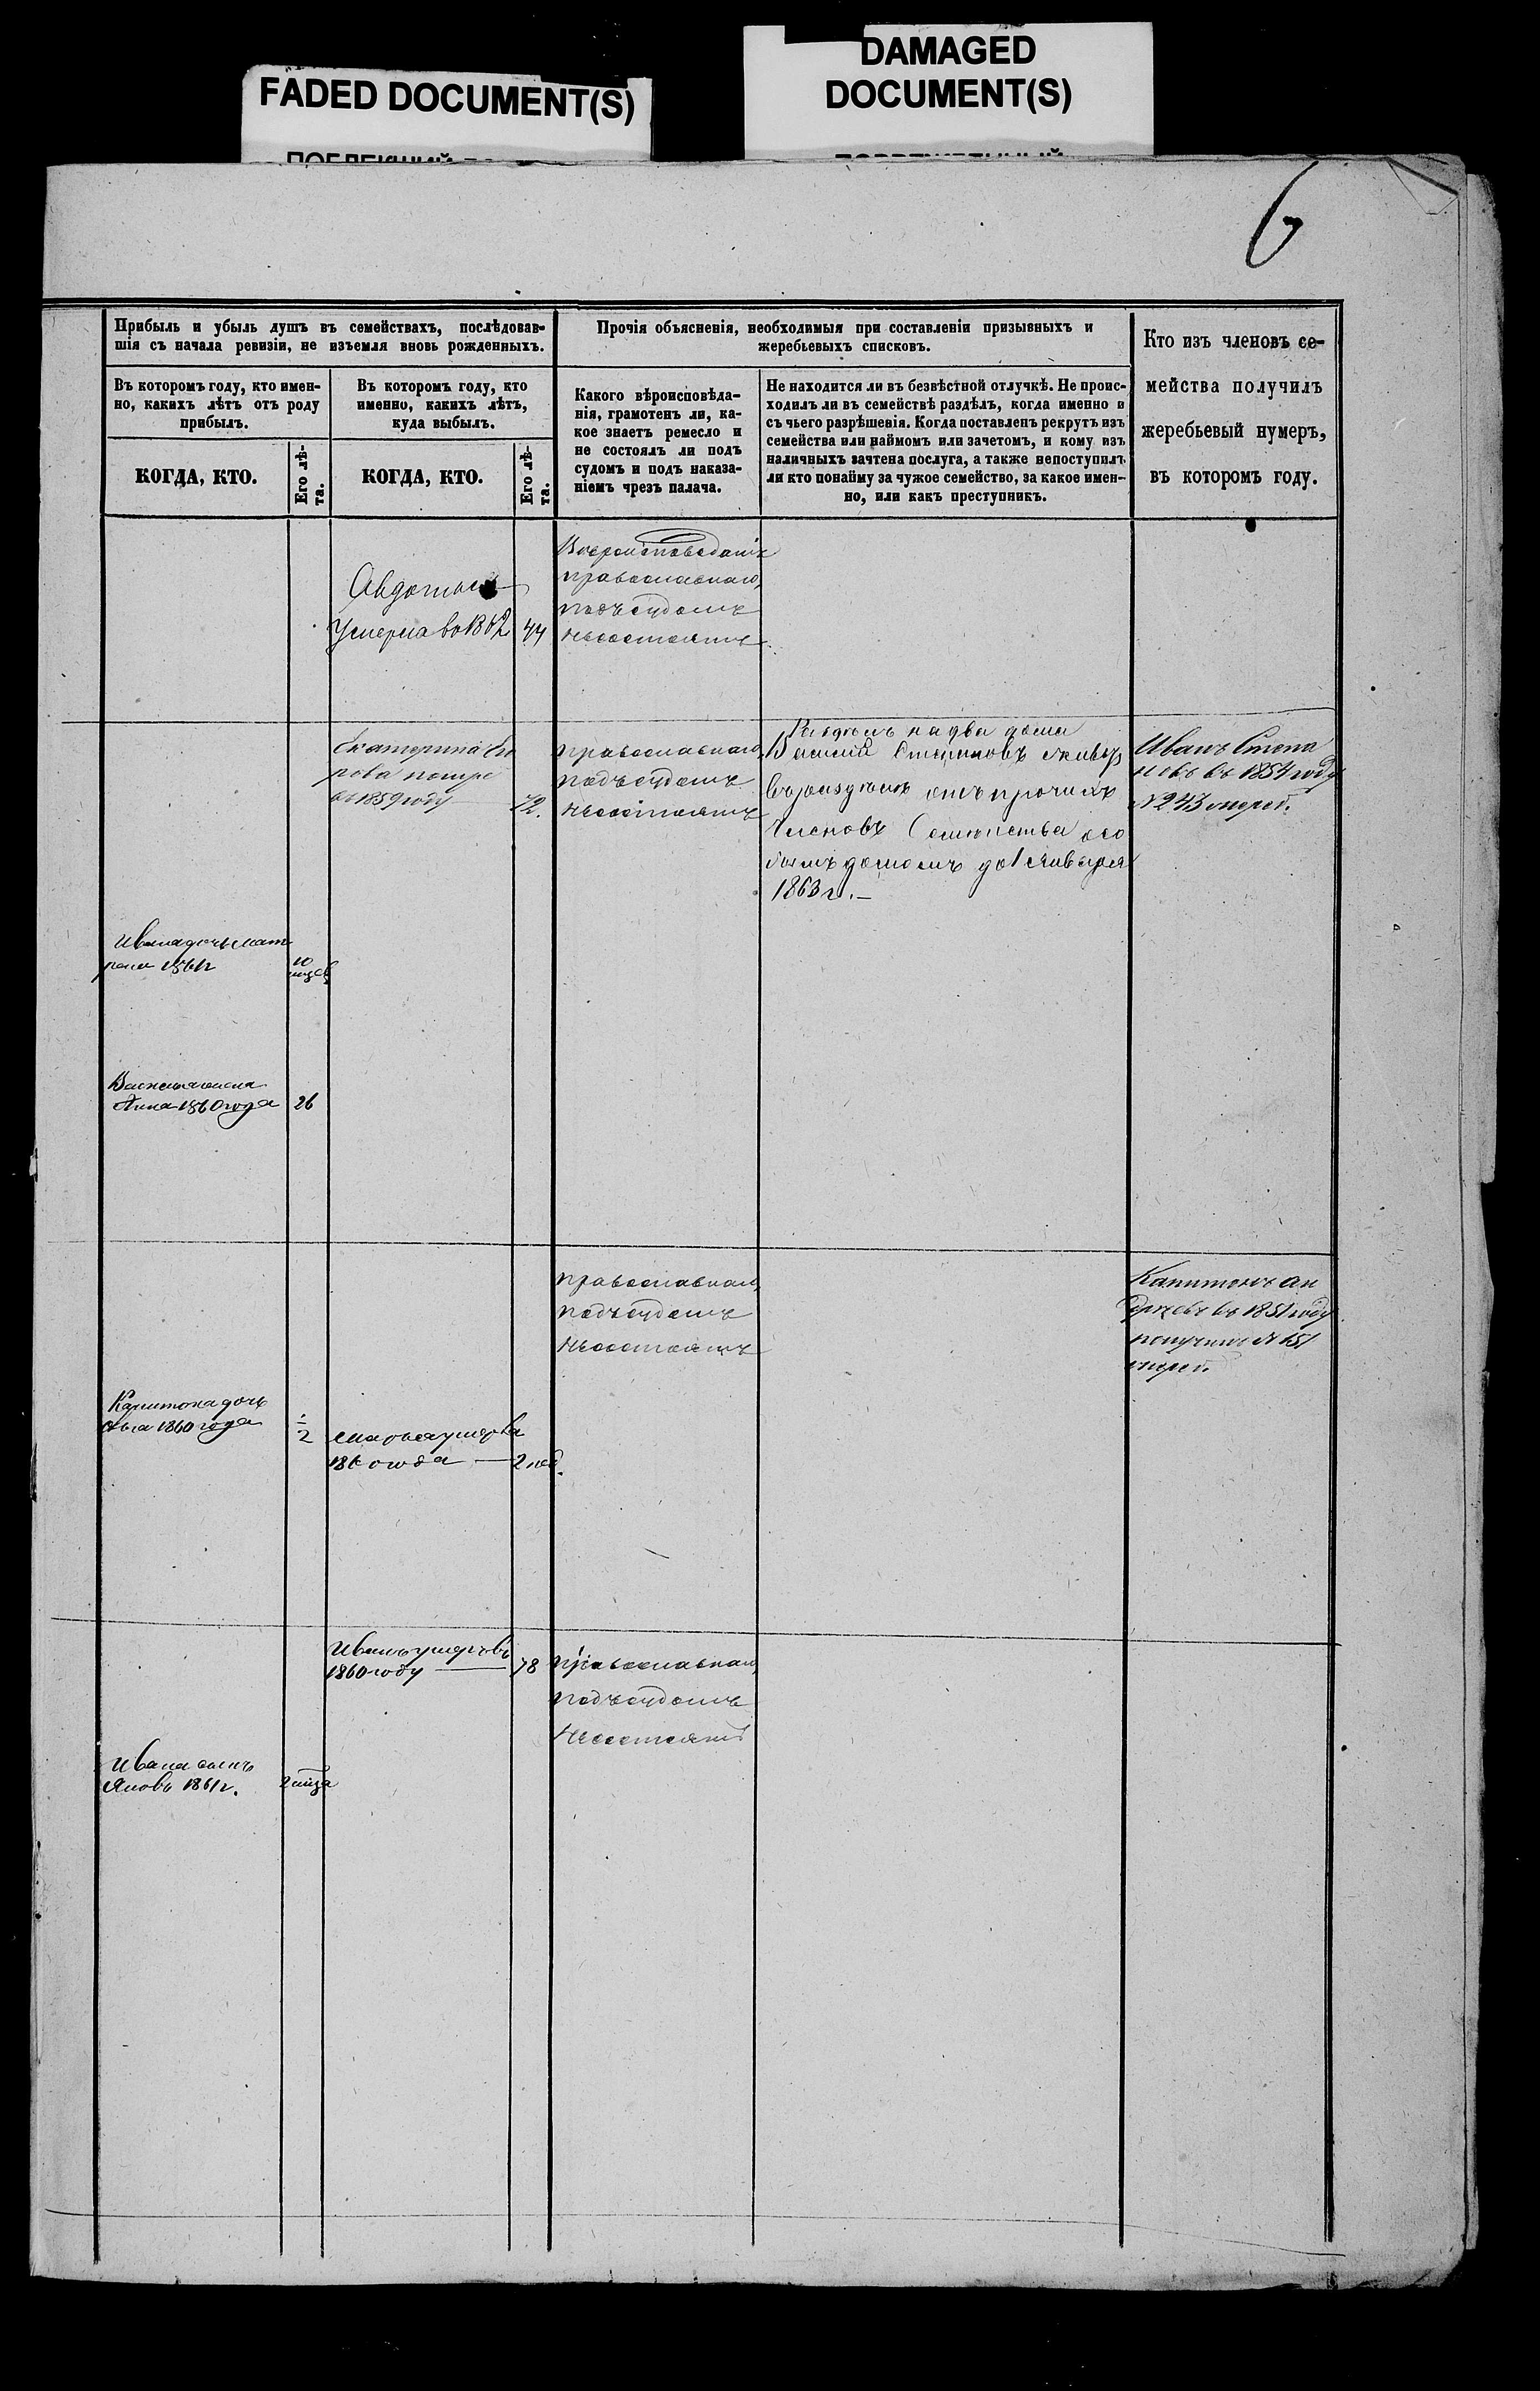 FADED DOCUMENT(S)
DAMAGED
DOCUMENT(S)
6
Прибыль и убыль душъ въ семействахъ, послѣдовав-
шія съ начала ревизіи, не изъемля вновь рожденныхъ.
Прочія объясненія, необходимыя при составленіи призывныхъ и
жеребьевыхъ списковъ.
Кто изъ членовъ се-
мейства получилъ
жеребьевый нумеръ,
въ которомъ году.
Въ которомъ году, кто имен-
но, какихъ лѣтъ отъ роду
прибылъ.
Въ которомъ году, кто
именно, какихъ лѣтъ,
куда выбылъ.
Какого вѣроисповѣда-
нія, грамотенъ ли, ка-
кое знаетъ ремесло и
не состоялъ ли подъ
судомъ и подъ наказа-
ніемъ чрезъ палача.
Не находится ли въ безвѣстной отлучкѣ. Не проис-
ходилъ ли въ семействѣ раздѣлъ, когда именно и
съ чьего разрѣшенія. Когда поставленъ рекрутъ изъ
семейства или наймомъ или зачетомъ, и кому изъ
наличныхъ зачтена послуга, а также непоступилъ
ли кто понайму за чужое семейство, за какое имен-
но, или какъ преступникъ.
КОГДА, КТО.
Его лѣ-
та.
КОГДА, КТО.
Его лѣ-
та.
Вѣроисповеданія
православнаго,
подъ судомъ
несостоятъ
Авдотья
Умерла во 44
Екатерина
въ 1859 году 72.
православнаго,
подъ судомъ
несостоятъ
на два дома
Василий Степановъ
отъ прочихъ
Членовъ Семейства осо
бымъ домомъ до 1 Января
1863 г.
Иванъ Степа
новъ въ 1854 году
№ 243
Ивана дочь Мат
рена 1861 г 10
Василья жена
Анна 1860 года 26
православнаго,
подъ судомъ
несостоятъ
Капитонъ Ан
дреевъ въ 1851 году
получилъ № 151
Капитона дочь
1860 года 1/2
Марья умерла
1860 года 2 нед.
Иванъ умеръ въ
1860 году 78
православнаго,
подъ судомъ
несостоятъ
Ивана сынъ
Яковъ 1861 г. 2 мца